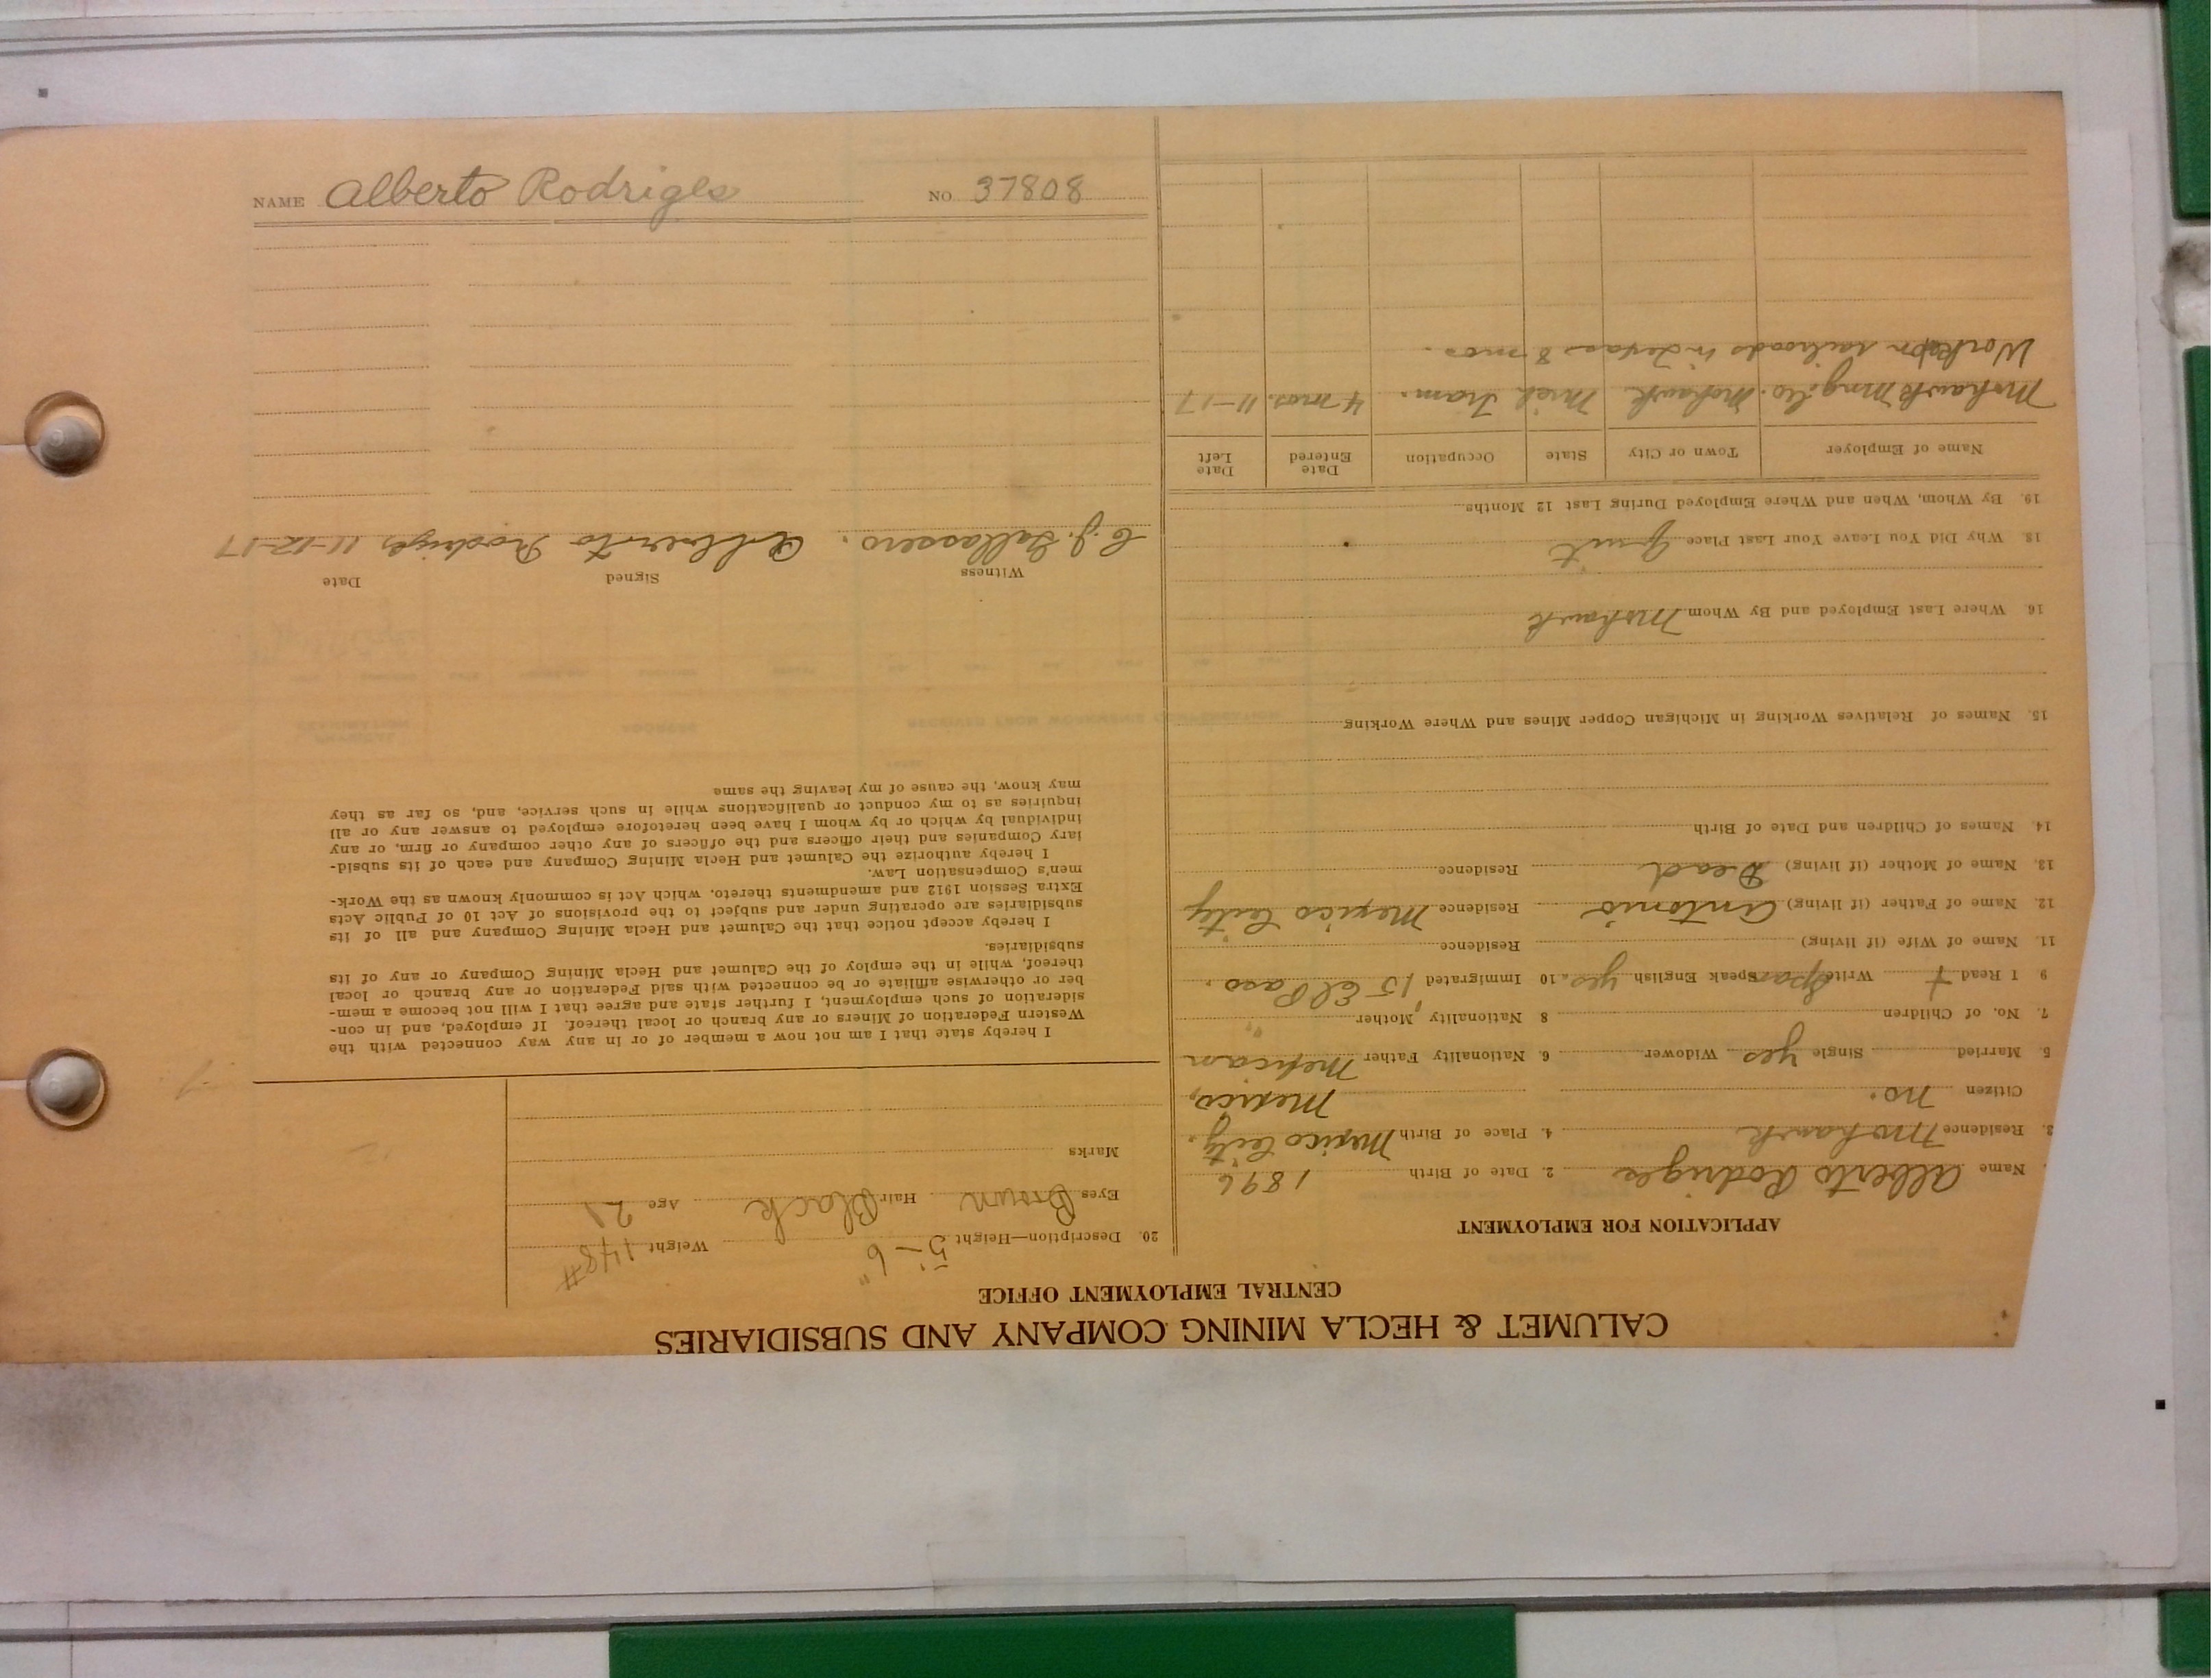 CALUMET & HECLA MINING COMPANY AND SUBSIDIARIES
CENTRAL EMPLOYMENT OFFICE
APPLICATION FOR EMPLOYMENT
Name Alberto Rodriges 2. Date of Birth 1896
3. Residence Mohawk 4. Place of Birth Mexico City.
Citizen no. Mexico,
5. Married Single yes Widower 6. Nationality Father Mexican
7. No. of Children 8 Nationality Mother " "
9 I Read + Write Span Speak English yes. 10 Immigrated 15 El Paso.
11. Name of Wife (if living) Residence
12. Name of Father (if living) Antonio Residence Mexico City
13. Name of Mother (if living) Dead Residence
14. Names of Children and Date of Birth
15. Names of Relatives Working in Michigan Copper Mines and Where Working
16 Where Last Employed and By Whom Mohawk
18. Why Did You Leave Your Last Place Quit
19. By Whom, When and Where Employed During Last 12 Months
Name of Employer Town or City State Occupation Date Entered Date Left
Mohawk Mng. Co. Mohawk Mich Tram. 4 mos. 11-17
Worked on railroads in Texas 8 mos.
20. Description—Height 5'-6" Weight 148#
Eyes Brown Hair Black Age 21
Marks
I hereby state that I am not now a member of or in any way connected with the
Western Federation of Miners or any branch or local thereof. If employed, and in con-
sideration of such employment, I further state and agree that I will not become a mem-
ber or otherwise affiliate or be connected with said Federation or any branch or local
thereof, while in the employ of the Calumet and Hecla Mining Company or any of its
subsidiaries.
I hereby accept notice that the Calumet and Hecla Mining Company and all of its
subsidiaries are operating under and subject to the provisions of Act 10 of Public Acts
Extra Session 1912 and amendments thereto, which Act is commonly known as the Work-
men's Compensation Law.
I hereby authorize the Calumet and Hecla Mining Company and each of its subsid-
iary Companies and their officers and the officers of any other company or firm, or any
individual by which or by whom I have been heretofore employed to answer any or all
inquiries as to my conduct or qualifications while in such service, and, so far as they
may know, the cause of my leaving the same
Witness Signed Date
C. J. Gallassero. Alberto Rodriges 11-12-17
NAME Alberto Rodriges NO 37808